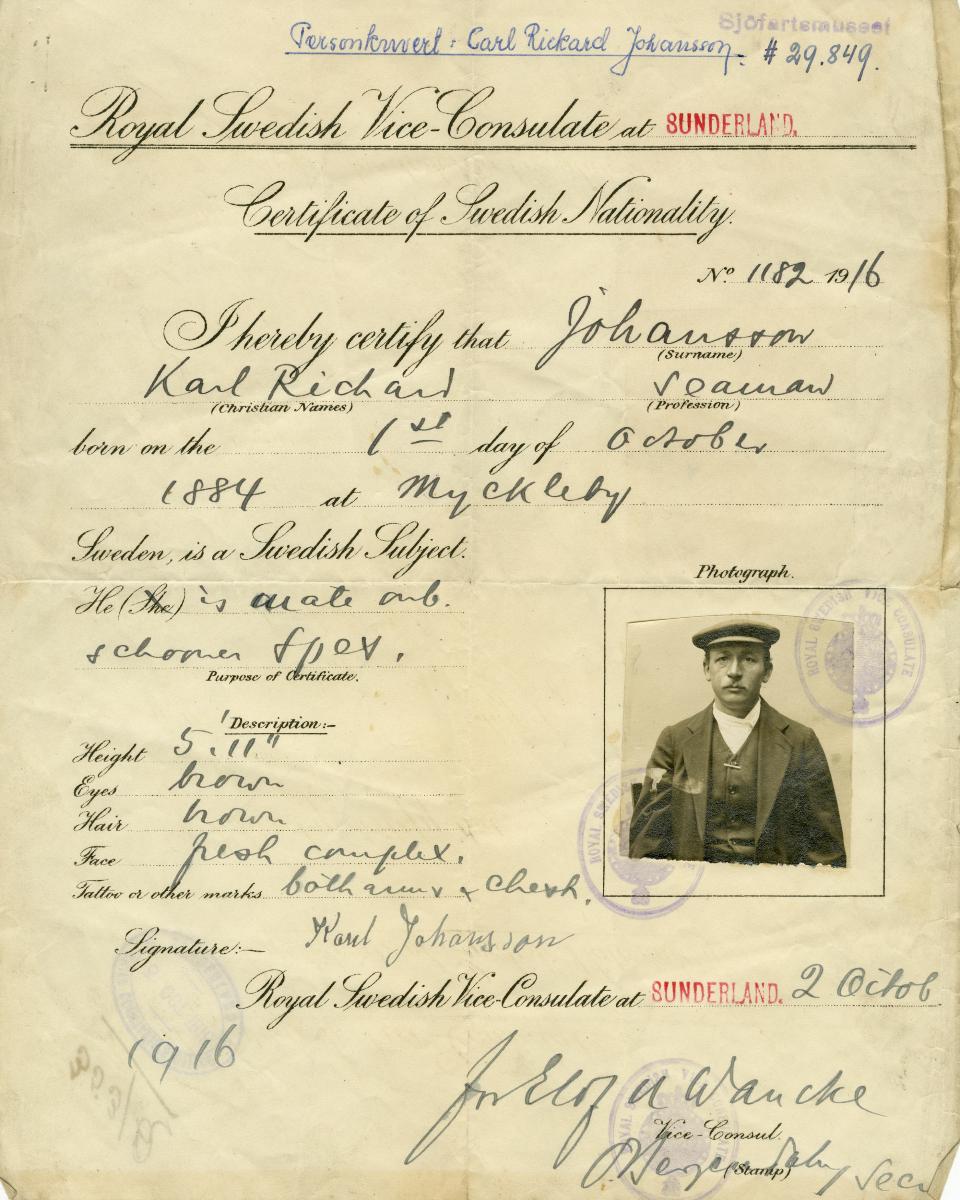 Sjöfartsmuseet
Personkuvert: Carl Rickard Johansson. # 29.849.
Royal Swedish Vice-Consulate at SUNDERLAND.
Certificate of Swedish Nationality.
No. 1182 1916
I hereby certify that Johansson
(Surname)
Karl Richard seaman
(Christian Names) (Profession)
born on the 1st day of October
1884 at Myckleby
Sweden, is a Swedish Subject.
He (She) is mate onb.
schooner
Purpose of Certificate.
Photograph.
ROYAL SWEDISH VICE CONSULATE
Description:-
Height 5'.11"
Eyes brown
Hair brown
Face fresh complex.
Tattoo or other marks both arms & chest.
ROYAL SWEDISH
Signature:- Karl Johansson
Royal Swedish Vice-Consulate at SUNDERLAND. 2 Octob
1916
for Elof Wancke
Vice-Consul.
(Stamp)